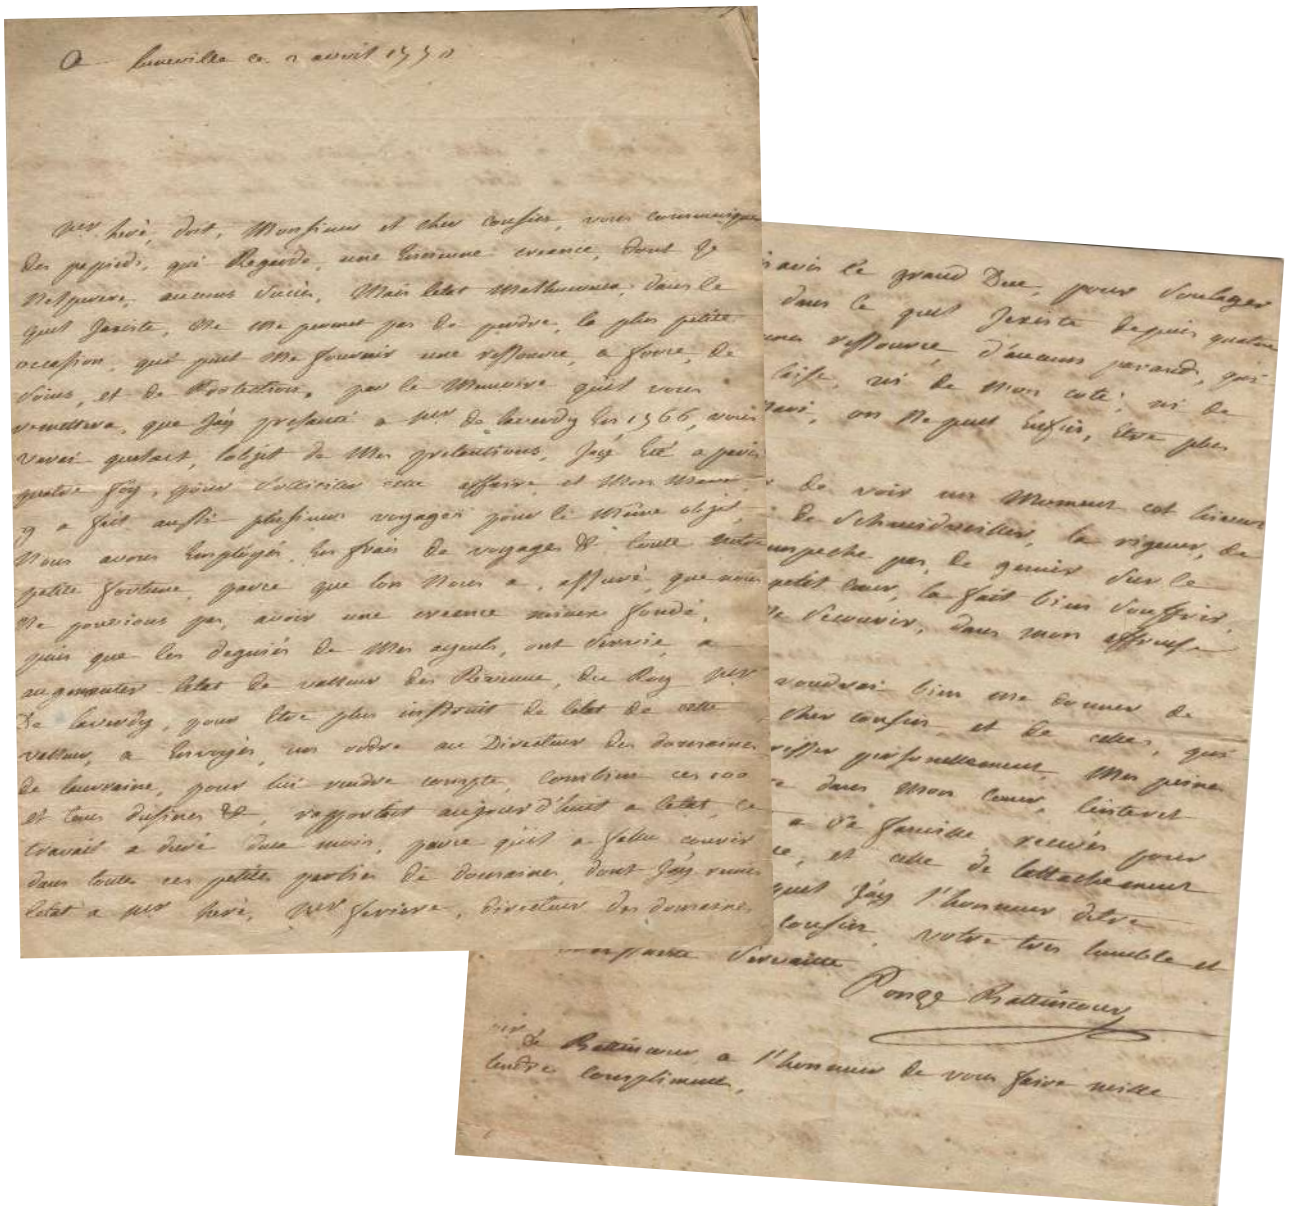 A Luneville ce 2 avril 177
Mr heré, doit, Monsieur et cher cousin, vous communiquer
des papieds, qui Regarde, une encienne creance, dont Je
Nespere, aucuns succés, Mais letat Malheureux, dans le
quel Jexiste, Ne Me permet pas de perdre, la plus petite
occasion, qui puit Me fournir une ressource, a force, de
soins, et de Protection, par le Memoire quil vous
remettera, que Jáy presenté a Mr de laverdy En 1766, vous
verai quel est, lobjet de Mes pretentions, Jáy Eté a paris
quatre foy, pour solliciter cette affaire, et Mon Mari
y a fait aussi plusieurs voyages pour le Même objet,
Nous avons Employés, En frais de voyages & toute notre
petite fortune, parce que lon Nous a, assuré, que nous
Ne pouvions pas, avoir une creance mieux fondé,
puis que les de Mes ayeuls, ont servie, a
augmenter letat de valleur des Revenue, du Roy Mr
De laverdy, pour Etre plus instruit de letat de cette
valleur, a Envoyés, un ordre au Directeur des domaines
de lauraine, pour lui rendre compte, combien ces
et tous &, rapportoit aujourd'huit a letat, ce
travail a duré dux mois, parce quil a fallu courir
dans toutes ces petites parties de domaines, dont Jáy remis
letat a Mr heré, Mr ferriere, directeur des domaines
avis le grand Duc, pour soulager
dans le quel Jexiste depuis quatre
ressource, d'aucuns parands, qui
laise, ni de Mon coté, ni de
Mari, on Ne peut Enfin, Etre plus
de voir un Moment cet
de Schmidveiller, la rigueur, de
empeche pas, de gemir sur le
petit cœur, la fait bien souffrir,
secourir, dans mon affreuse
voudrai bien me donner de
cher cousin, et de celles, qui
personnellement, Mes peine
dans Mon cœur, linteret
a sa famille, recuës pour
et celle de lattachement
quel Jáy l'honneur detre
cousin, votre tres humble et
servante
Ponze Battincour
Mr de Battincour a l'honneur de vous faire mille
tendre compliment,